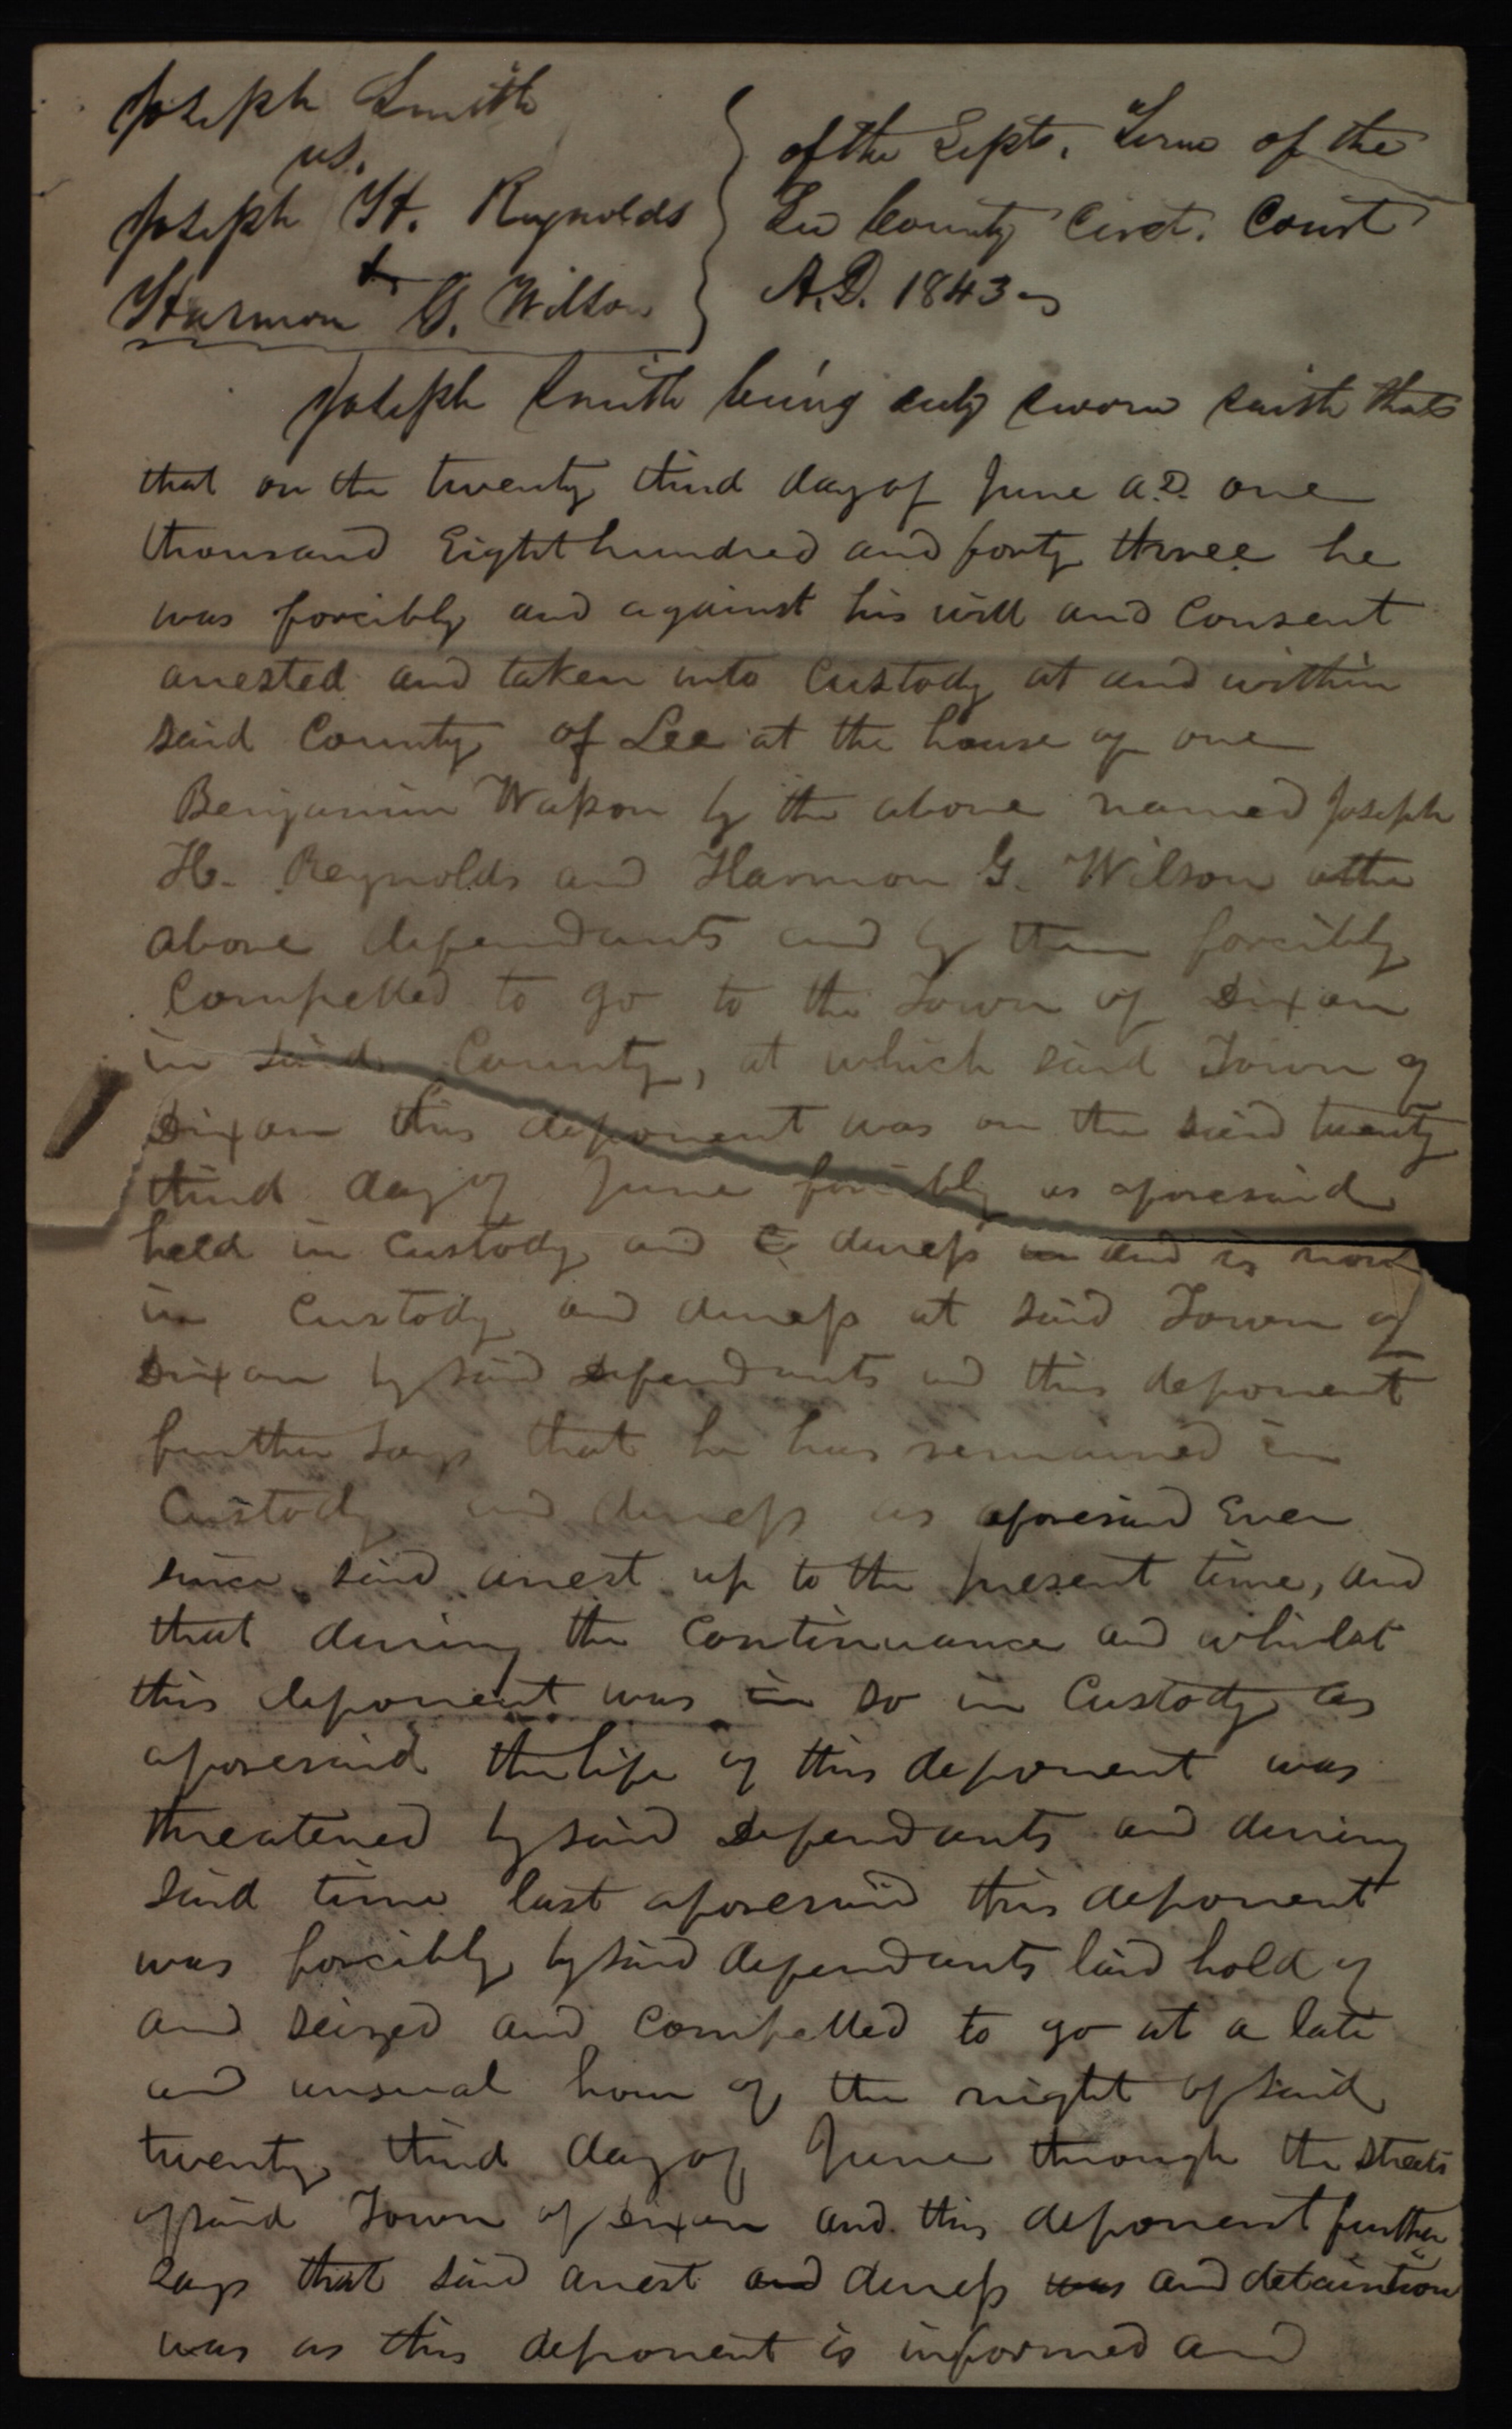 Joseph Smith
vs.
Joseph H. Reynolds
&
Harmon G. Wilson
of the Septr. Term of the
Lee County Circt. Court
A.D. 1843
Joseph Smith being duly sworn saith that
that on the twenty third day of June A.D. one
thousand Eight hundred and forty three he
was forcibly and against his will and Consent
arrested and taken into Custody at and within
said County of Lee at the house of one
Benjamin Wasson by the above named Joseph
H. Reynolds and Harmon G. Wilson the
above defendants and by them forcibly
Compelled to go to the Town of Dixon
in said County, at which said Town of
Dixon this deponent was on the said twenty
third day of June forcibly as aforesaid
held in Custody and duress in and is now
in Custody and duress at said Town of
Dixon by said defendants and this deponent
further says that he has remained in
Custody and duress as aforesaid Ever
since said arrest up to the present time, and
that during the Continuance and whilst
this deponent was in so in Custody as
aforesaid the life of this deponent was
threatened by said Defendants and during
said time last aforesaid this deponent
was forcibly by said defendants laid hold of
and seized and Compelled to go at a late
and unusual hour of the night of said
twenty third day of June through the streets
of said Town of Dixon and this deponent further
says that said arrest and duress was and detaintion
was as this deponent is informed and